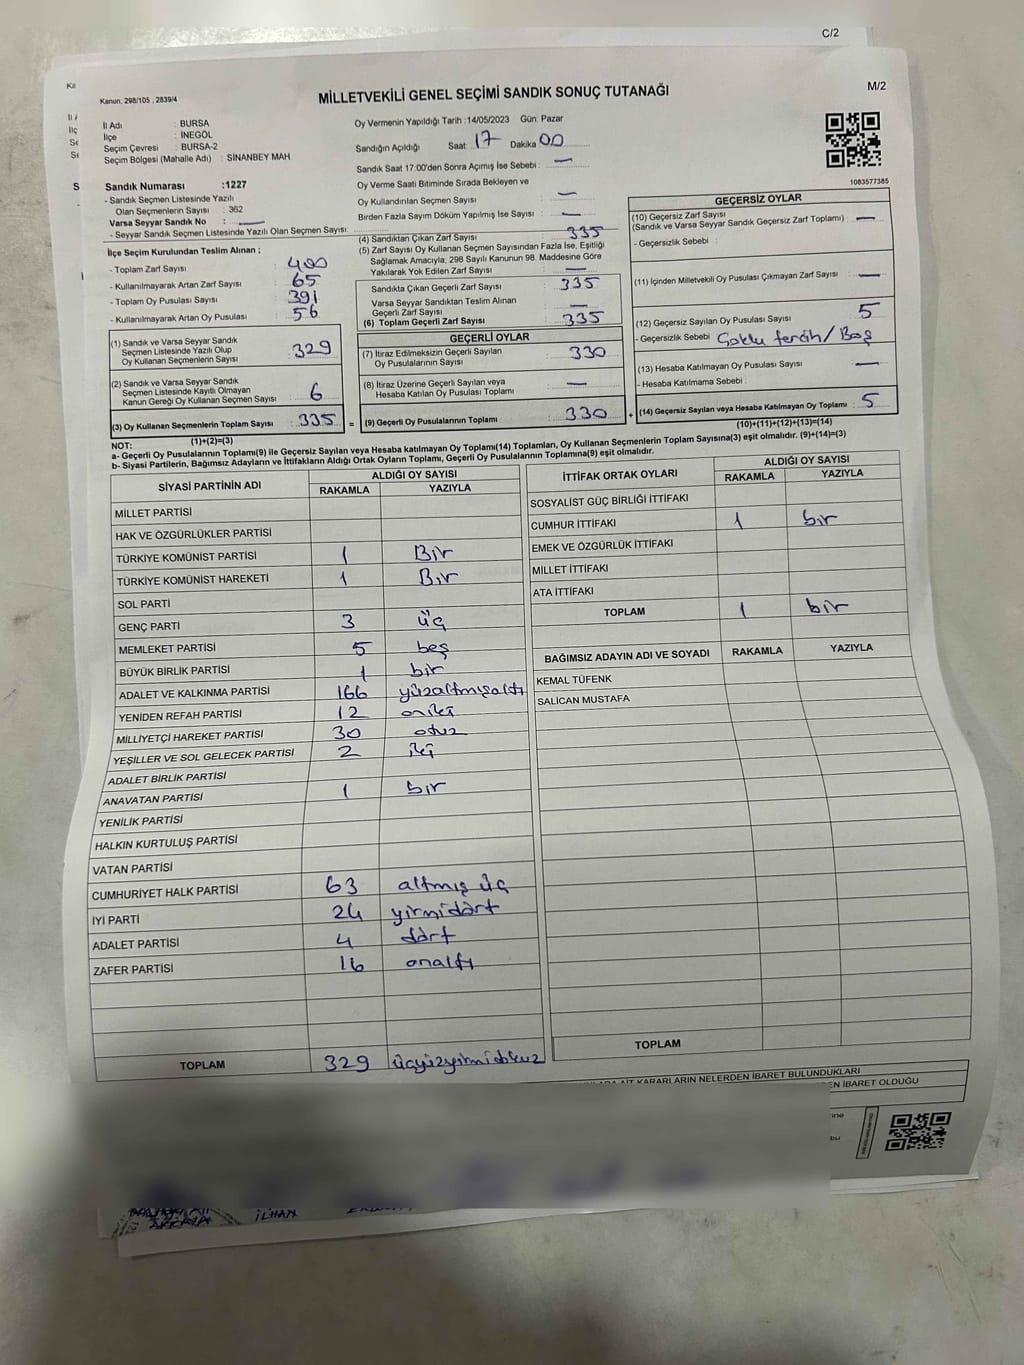 C/2
Kanun: 298/105 , 2839/4
MİLLETVEKİLİ GENEL SEÇİMİ SANDIK SONUÇ TUTANAĞI
M/2
İl Adı : BURSA
İlçe : İNEGÖL
Seçim Çevresi : BURSA-2
Seçim Bölgesi (Mahalle Adı) : SİNANBEY MAH
Sandık Numarası :1227
- Sandık Seçmen Listesinde Yazılı
Olan Seçmenlerin Sayısı : 362
Varsa Seyyar Sandık No : —
- Seyyar Sandık Seçmen Listesinde Yazılı Olan Seçmen Sayısı:
Oy Vermenin Yapıldığı Tarih :14/05/2023 Gün: Pazar
Sandığın Açıldığı Saat: 17 Dakika 00
Sandık Saat 17:00'den Sonra Açımış İse Sebebi : —
Oy Verme Saati Bitiminde Sırada Bekleyen ve
Oy Kullandırılan Seçmen Sayısı : —
Birden Fazla Sayım Döküm Yapılmış İse Sayısı : —
1083577385
İlçe Seçim Kurulundan Teslim Alınan ;
- Toplam Zarf Sayısı : 400
- Kullanılmayarak Artan Zarf Sayısı : 65
- Toplam Oy Pusulası Sayısı : 391
- Kullanılmayarak Artan Oy Pusulası : 56
(1) Sandık ve Varsa Seyyar Sandık
Seçmen Listesinde Yazılı Olup
Oy Kullanan Seçmenlerin Sayısı : 329
(2) Sandık ve Varsa Seyyar Sandık
Seçmen Listesinde Kayıtlı Olmayan
Kanun Gereği Oy Kullanan Seçmen Sayısı : 6
(3) Oy Kullanan Seçmenlerin Toplam Sayısı : 335
(1)+(2)=(3)
(4) Sandıktan Çıkan Zarf Sayısı : 335
(5) Zarf Sayısı Oy Kullanan Seçmen Sayısından Fazla İse, Eşitliği
Sağlamak Amacıyla; 298 Sayılı Kanunun 98. Maddesine Göre
Yakılarak Yok Edilen Zarf Sayısı : —
Sandıkta Çıkan Geçerli Zarf Sayısı : 335
Varsa Seyyar Sandıktan Teslim Alınan
Geçerli Zarf Sayısı : —
(6) Toplam Geçerli Zarf Sayısı : 335
GEÇERLİ OYLAR
(7) İtiraz Edilmeksizin Geçerli Sayılan
Oy Pusulalarının Sayısı : 330
(8) İtiraz Üzerine Geçerli Sayılan veya
Hesaba Katılan Oy Pusulası Toplamı : —
= (9) Geçerli Oy Pusulalarının Toplamı : 330
GEÇERSİZ OYLAR
(10) Geçersiz Zarf Sayısı : —
(Sandık ve Varsa Seyyar Sandık Geçersiz Zarf Toplamı)
- Geçersizlik Sebebi :
(11) İçinden Milletvekili Oy Pusulası Çıkmayan Zarf Sayısı : —
(12) Geçersiz Sayılan Oy Pusulası Sayısı : 5
- Geçersizlik Sebebi : Çoklu tercih/Boş
(13) Hesaba Katılmayan Oy Pusulası Sayısı : —
- Hesaba Katılmama Sebebi :
+ (14) Geçersiz Sayılan veya Hesaba Katılmayan Oy Toplamı : 5
(10)+(11)+(12)+(13)=(14)
NOT:
a- Geçerli Oy Pusulalarının Toplamı(9) ile Geçersiz Sayılan veya Hesaba katılmayan Oy Toplamı(14) Toplamları, Oy Kullanan Seçmenlerin Toplam Sayısına(3) eşit olmalıdır. (9)+(14)=(3)
b- Siyasi Partilerin, Bağımsız Adayların ve İttifakların Aldığı Ortak Oyların Toplamı, Geçerli Oy Pusulalarının Toplamına(9) eşit olmalıdır.
SİYASİ PARTİNİN ADI ALDIĞI OY SAYISI
RAKAMLA YAZIYLA
MİLLET PARTİSİ
HAK VE ÖZGÜRLÜKLER PARTİSİ
TÜRKİYE KOMÜNİST PARTİSİ 1 Bir
TÜRKİYE KOMÜNİST HAREKETİ 1 Bir
SOL PARTİ
GENÇ PARTİ 3 üç
MEMLEKET PARTİSİ 5 beş
BÜYÜK BİRLİK PARTİSİ 1 bir
ADALET VE KALKINMA PARTİSİ 166 yüzaltmışaltı
YENİDEN REFAH PARTİSİ 12 oniki
MİLLİYETÇİ HAREKET PARTİSİ 30 otuz
YEŞİLLER VE SOL GELECEK PARTİSİ 2 iki
ADALET BİRLİK PARTİSİ
ANAVATAN PARTİSİ 1 bir
YENİLİK PARTİSİ
HALKIN KURTULUŞ PARTİSİ
VATAN PARTİSİ
CUMHURİYET HALK PARTİSİ 63 altmış üç
İYİ PARTİ 24 yirmidört
ADALET PARTİSİ 4 dört
ZAFER PARTİSİ 16 onaltı
TOPLAM 329 üçyüzyirmidokuz
İTTİFAK ORTAK OYLARI ALDIĞI OY SAYISI
RAKAMLA YAZIYLA
SOSYALİST GÜÇ BİRLİĞİ İTTİFAKI
CUMHUR İTTİFAKI 1 bir
EMEK VE ÖZGÜRLÜK İTTİFAKI
MİLLET İTTİFAKI
ATA İTTİFAKI
TOPLAM 1 bir
BAĞIMSIZ ADAYIN ADI VE SOYADI RAKAMLA YAZIYLA
KEMAL TÜFENK
SALİCAN MUSTAFA
TOPLAM
KARARLARIN NELERDEN İBARET BULUNDUKLARI
İBARET OLDUĞU
İLHAN